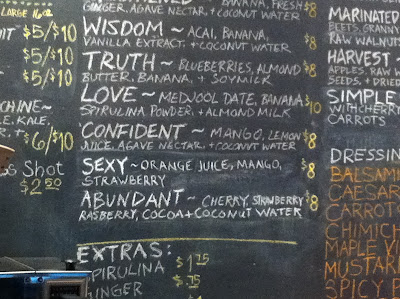 LARGE 16oz
$5/$10
$5/$10
CHINE~
ALE,
$6/$10
SHOT
$2.50
GINGER, AGAVE NECTAR + COCONUT WATER $8
WISDOM ~ ACAI, BANANA,
VANILLA EXTRACT, + COCONUT WATER $8
TRUTH ~ BLUEBERRIES, ALMOND
BUTTER, BANANA, + SOYMILK $8
LOVE ~ MEDJOOL DATE, BANANA
SPIRULINA POWDER, + ALMOND MILK $10
CONFIDENT ~ MANGO, LEMON
JUICE, AGAVE NECTAR, + COCONUT WATER $8
SEXY ~ ORANGE JUICE, MANGO,
STRAWBERRY $8
ABUNDANT ~ CHERRY, STRAWBERRY
RASBERRY, COCOA + COCONUT WATER $8
EXTRAS:
SPIRULINA $1.75
GINGER .75
MARINATED
BEETS, GRANNY
RAW WALNUTS
HARVEST ~
APPLES, RAW
SEEDS, + DRIED
SIMPLE
WITH CHERRY
CARROTS
DRESSIN
BALSAM
CAESAR
CARROT
CHIMICH
MAPLE VI
MUSTAR
SPICY P